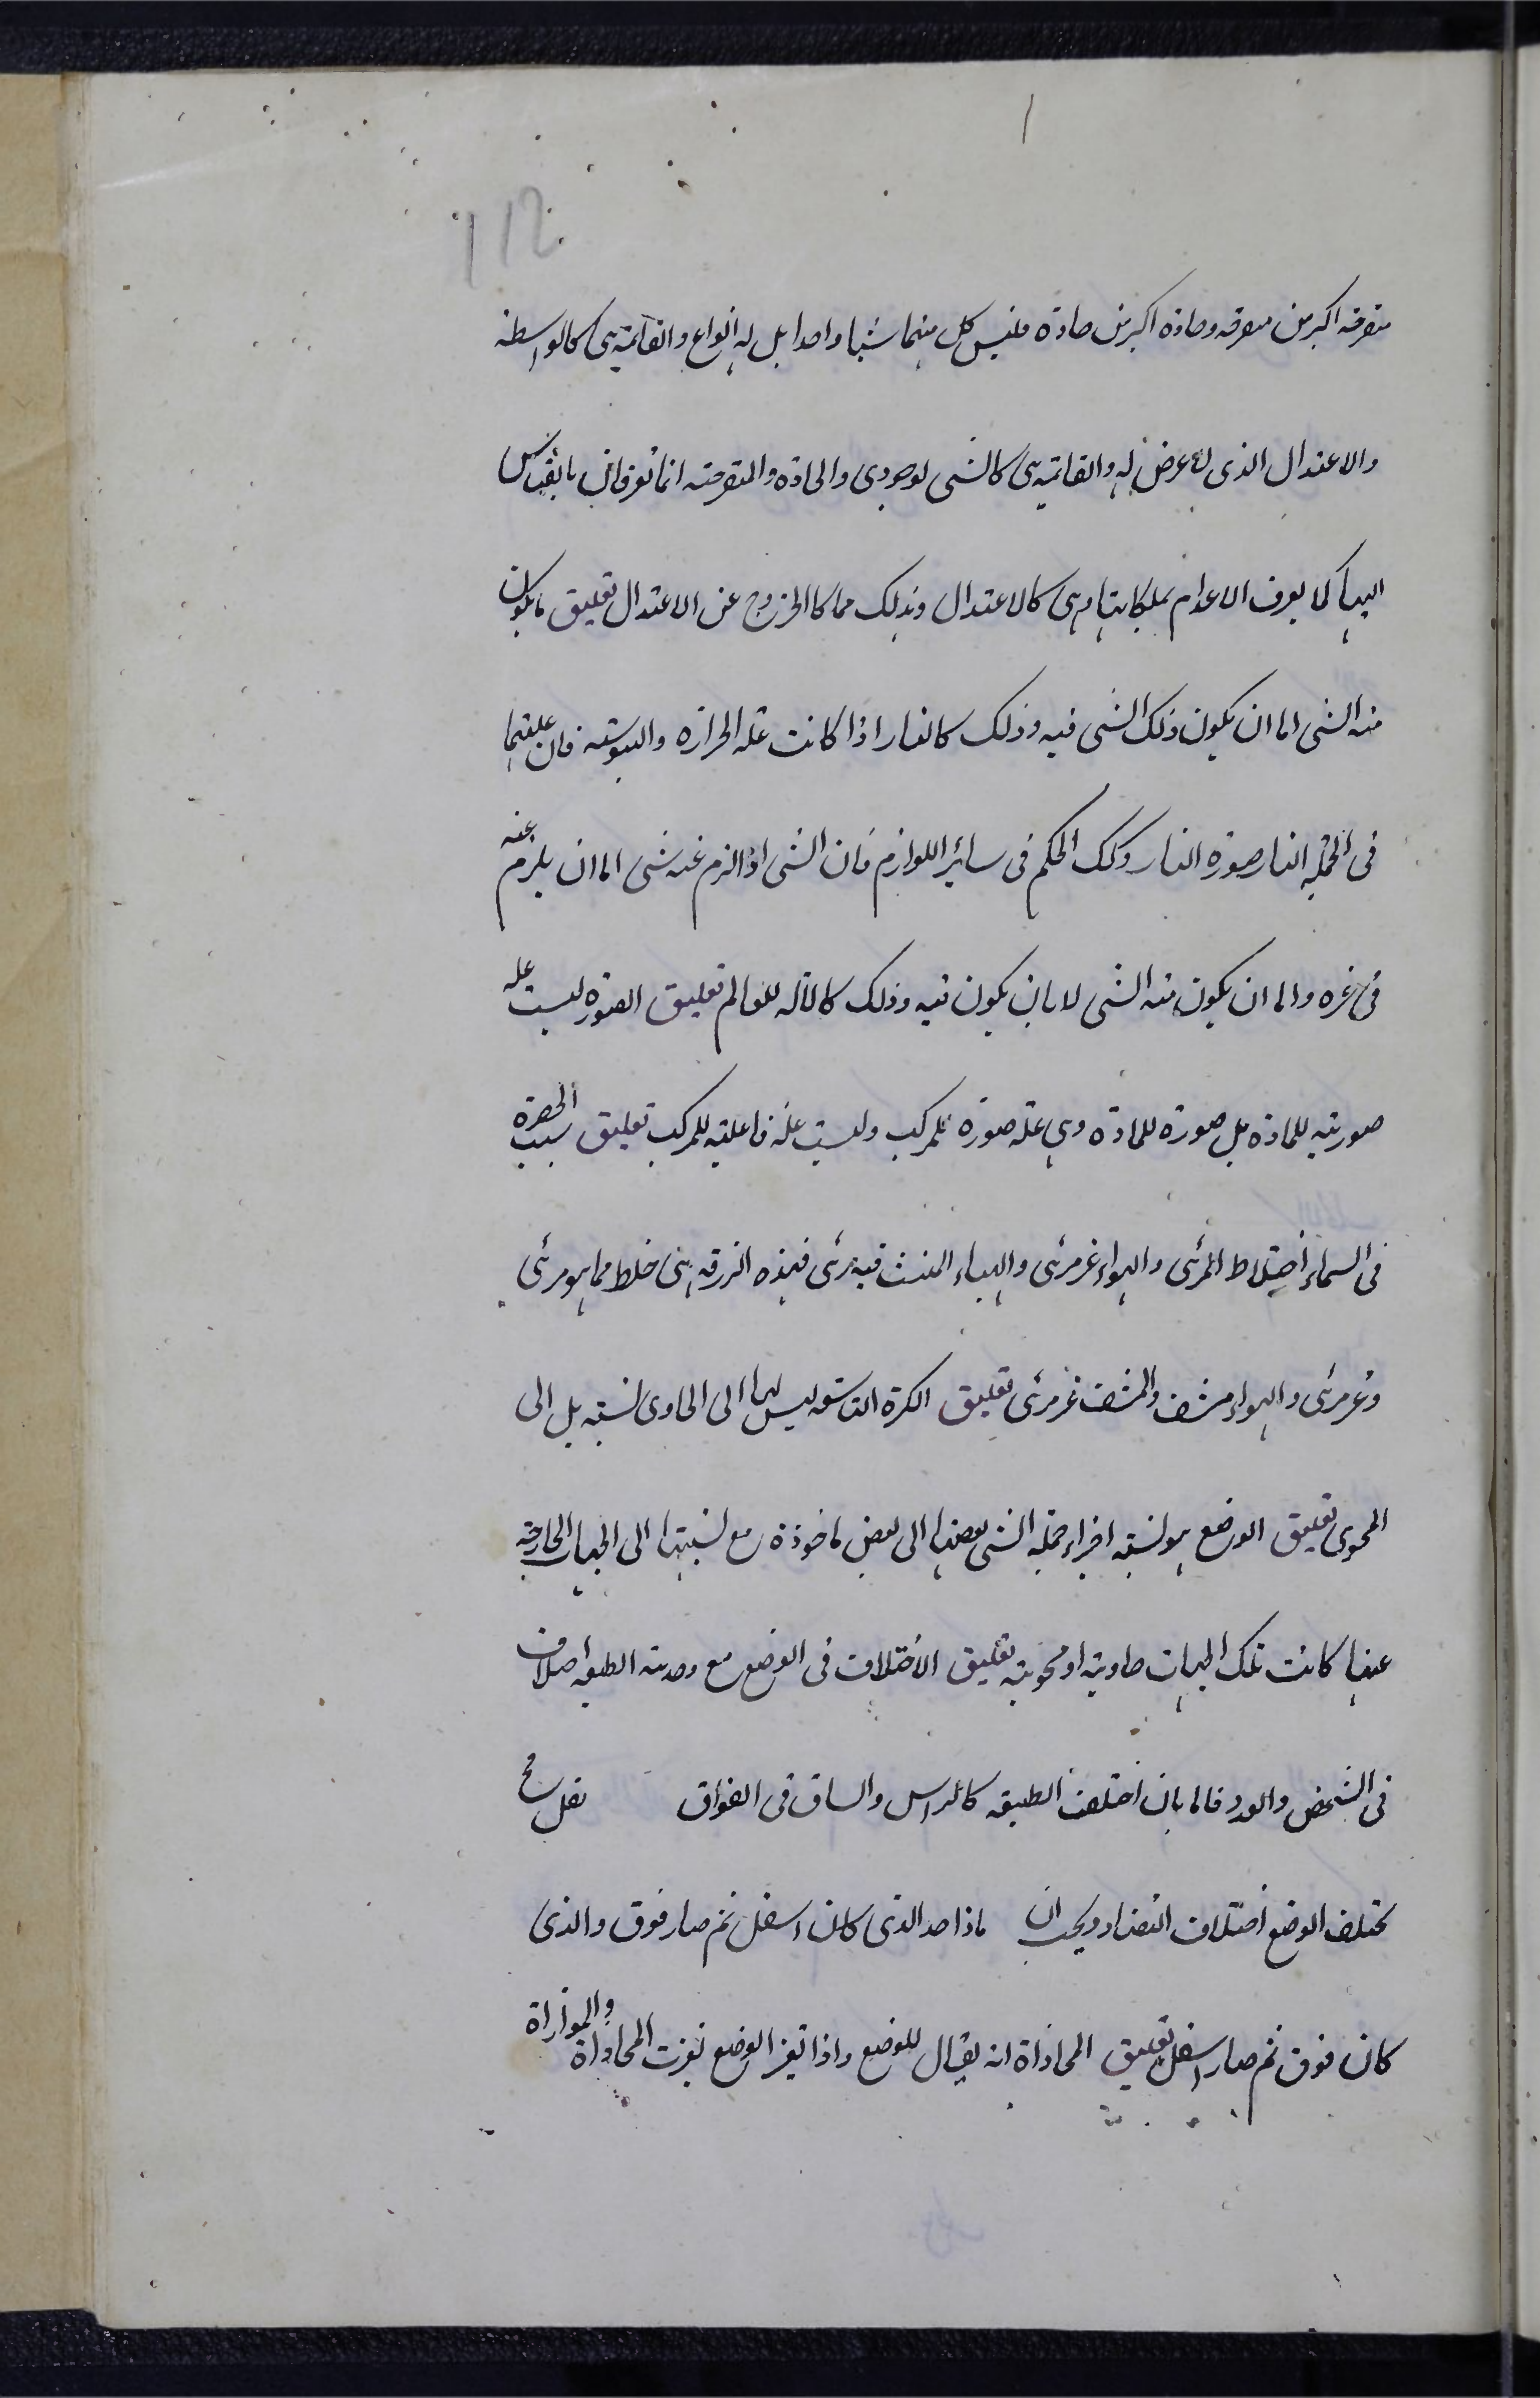 ۱۱۲
منفرجة اكبر من منفرجة وحادة اكبر من حادة فليس كل منهما شيئا واحدا بل له انواع والقائمة هى كالواسطة
والاعتدال الذى لا عرض له والقائمة هى كالشى لوجودى والحادة والمنفرجة انما تعرفان بالقياس
اليها كما يعرف الاعدام بملكاتها وهى كالاعتدال وذلك مما كالخروج عن الاعتدال تعليق ما يكون
منه الشى اما ان يكون ذلك الشى فيه وذلك كالنار اذا كانت علة الحرارة واليبوسة فان علتهما
فى الحقيقة النار صورة النار وكك الحكم فى ساير اللوازم فان الشى اذا لزم عنه شى اما ان يلزم عنه
فى غيره واما ان يكون منه الشى لا بان يكون فيه وذلك كالاله للعالم تعليق الصورة ليست علة
صورية للمادة بل صورة للمادة وهى علة صورة للمركب وليست علة فاعلية للمركب تعليق سبب الخضرة
فى السماء اختلاط المرئى والهواء غير مرئى والهباء المنبث فيه مرئى فهذه الزرقة هى خلط مما هو مرئى
وغير مرئى والهواء مشف والمشف غير مرئى تعليق الكرة التاسعة ليس لها الى الحاوى نسبة بل الى
المحوى تعليق الوضع هو نسبة اجزاء جملة الشى بعضها الى بعض ماخوذة مع نسبتها الى الجهات الخارجة
عنها كانت تلك الجهات حاوية او محوية تعليق الاختلاف فى الوضع مع وحدة الطبيعة اختلاف
فى الشخص والعدد فاما بان اختلفت الطبيعة كالراس والساق فى
يختلف الوضع اختلاف التضاد ويجب ان الذى كان اسفل ثم صار فوق والذى
كان فوق ثم صار اسفل تعليق المحاذاة انه يقال للوضع واذا تغير الوضع تغيرت المحاذاة والموازاة